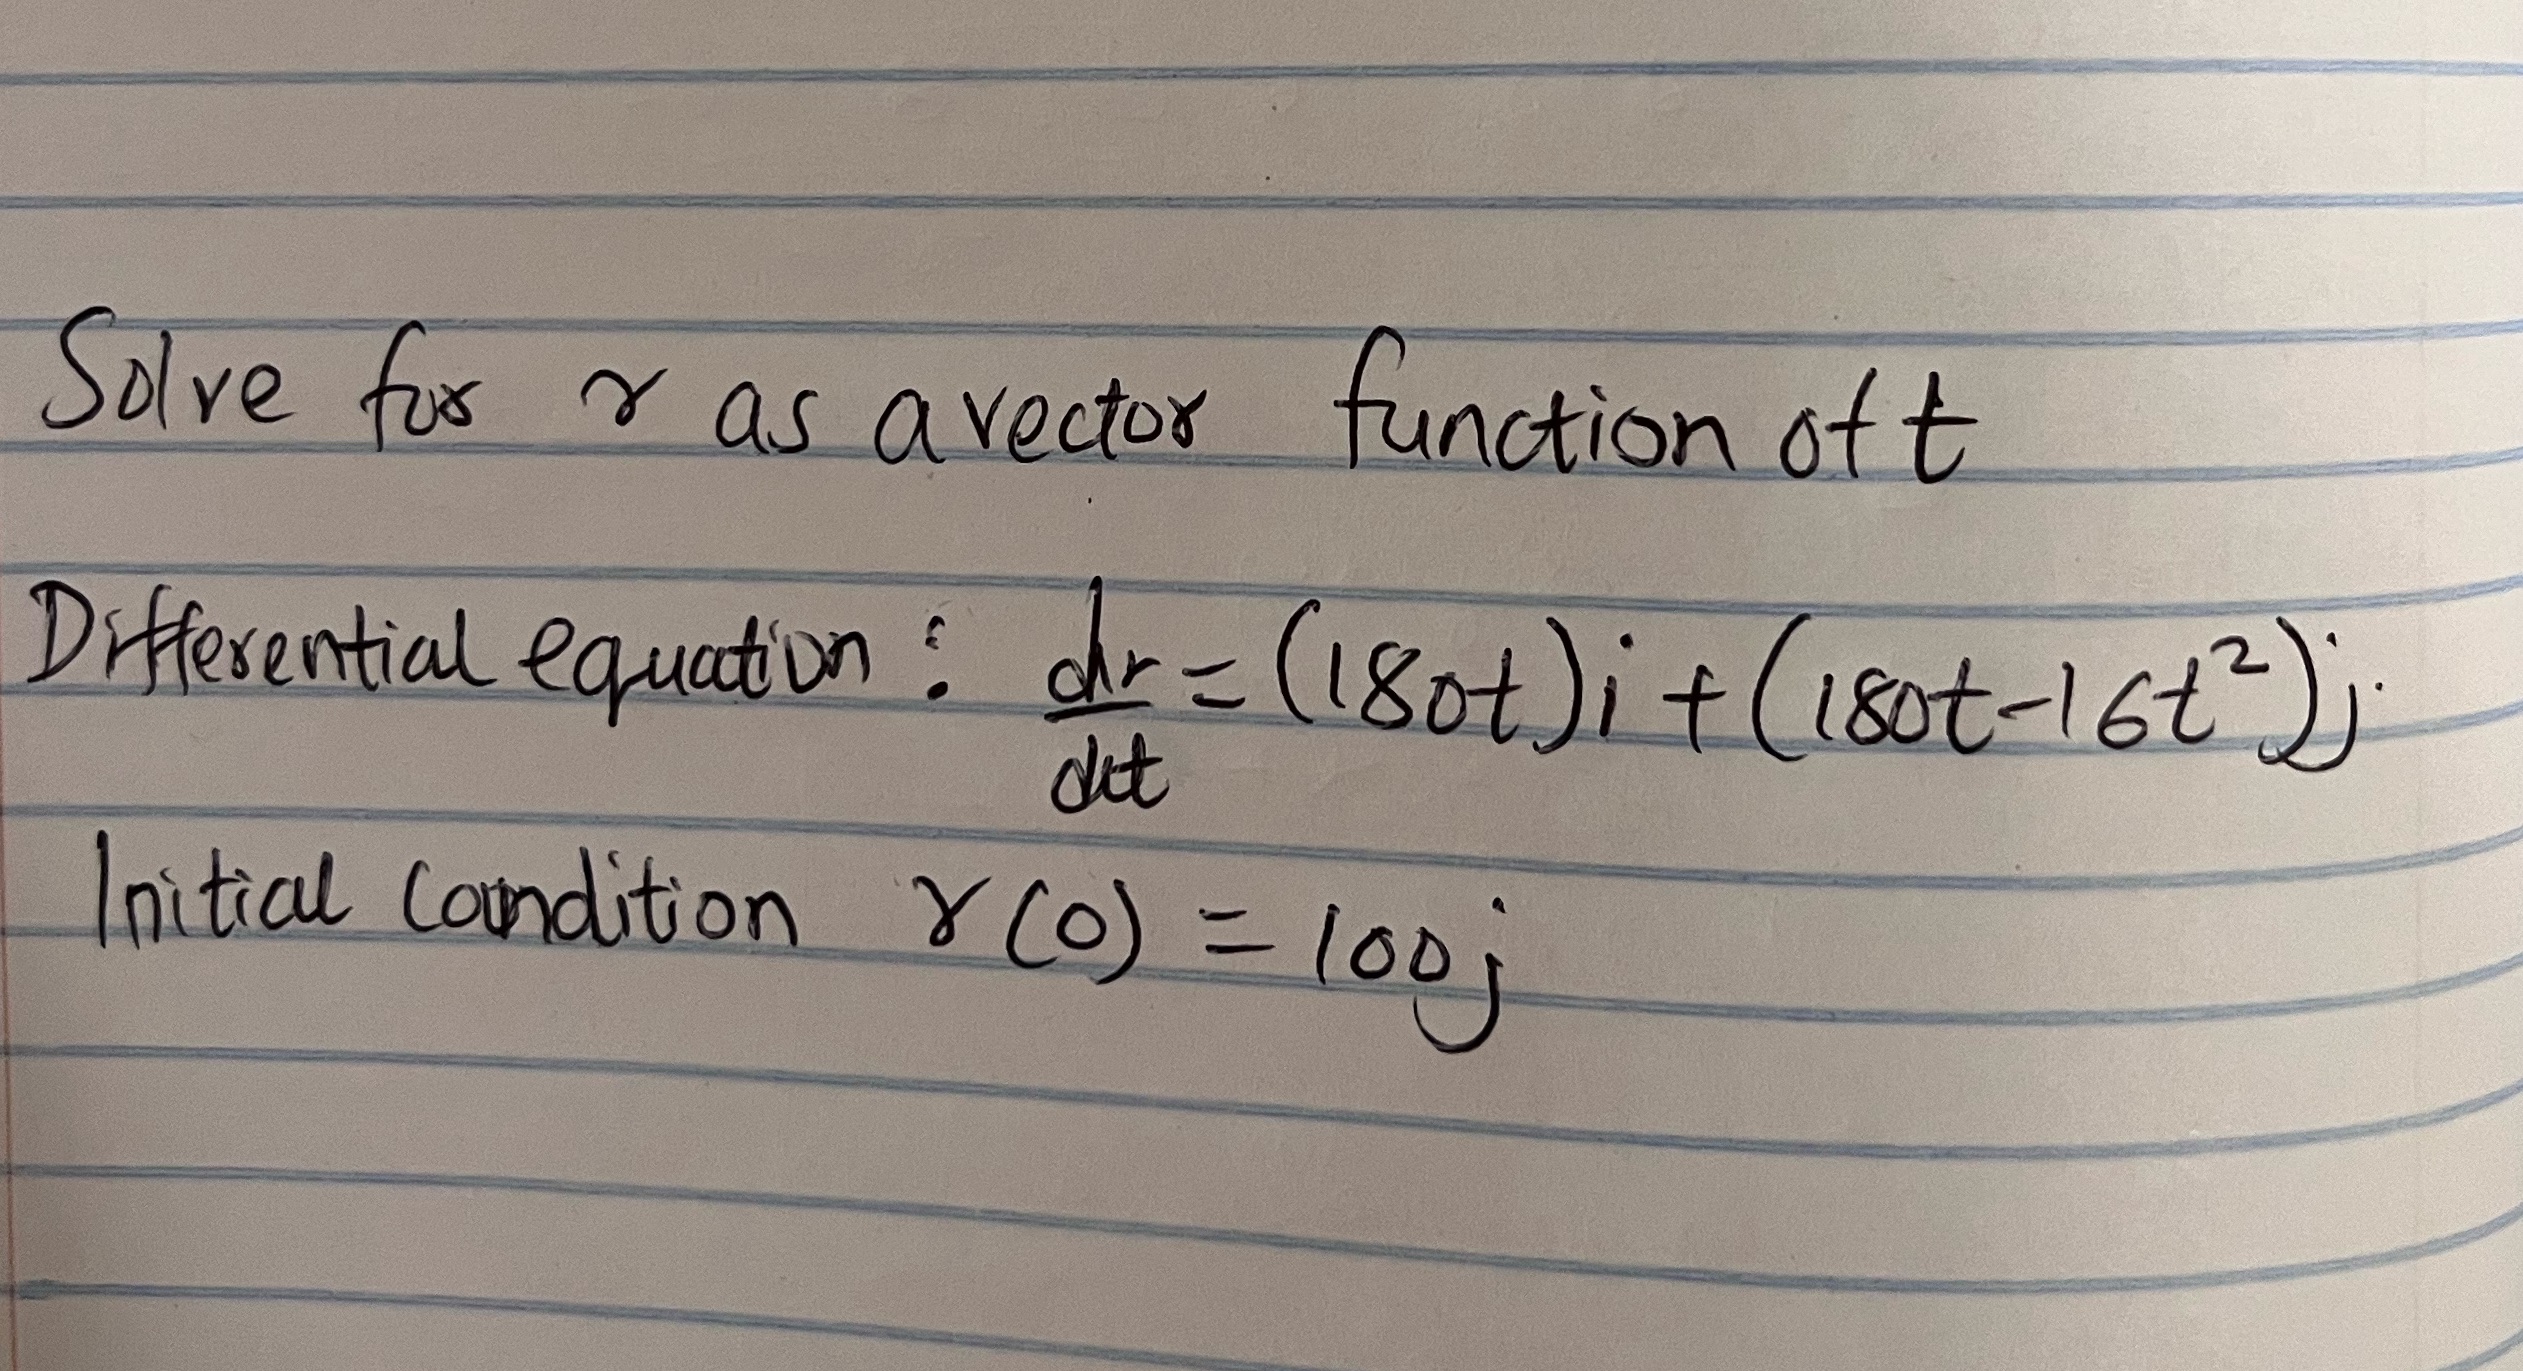 Solve for r as a vector function of t
Differential equation : dr/dt = (180t)i + (180t-16t²)j
Initial condition r(0) = 100j